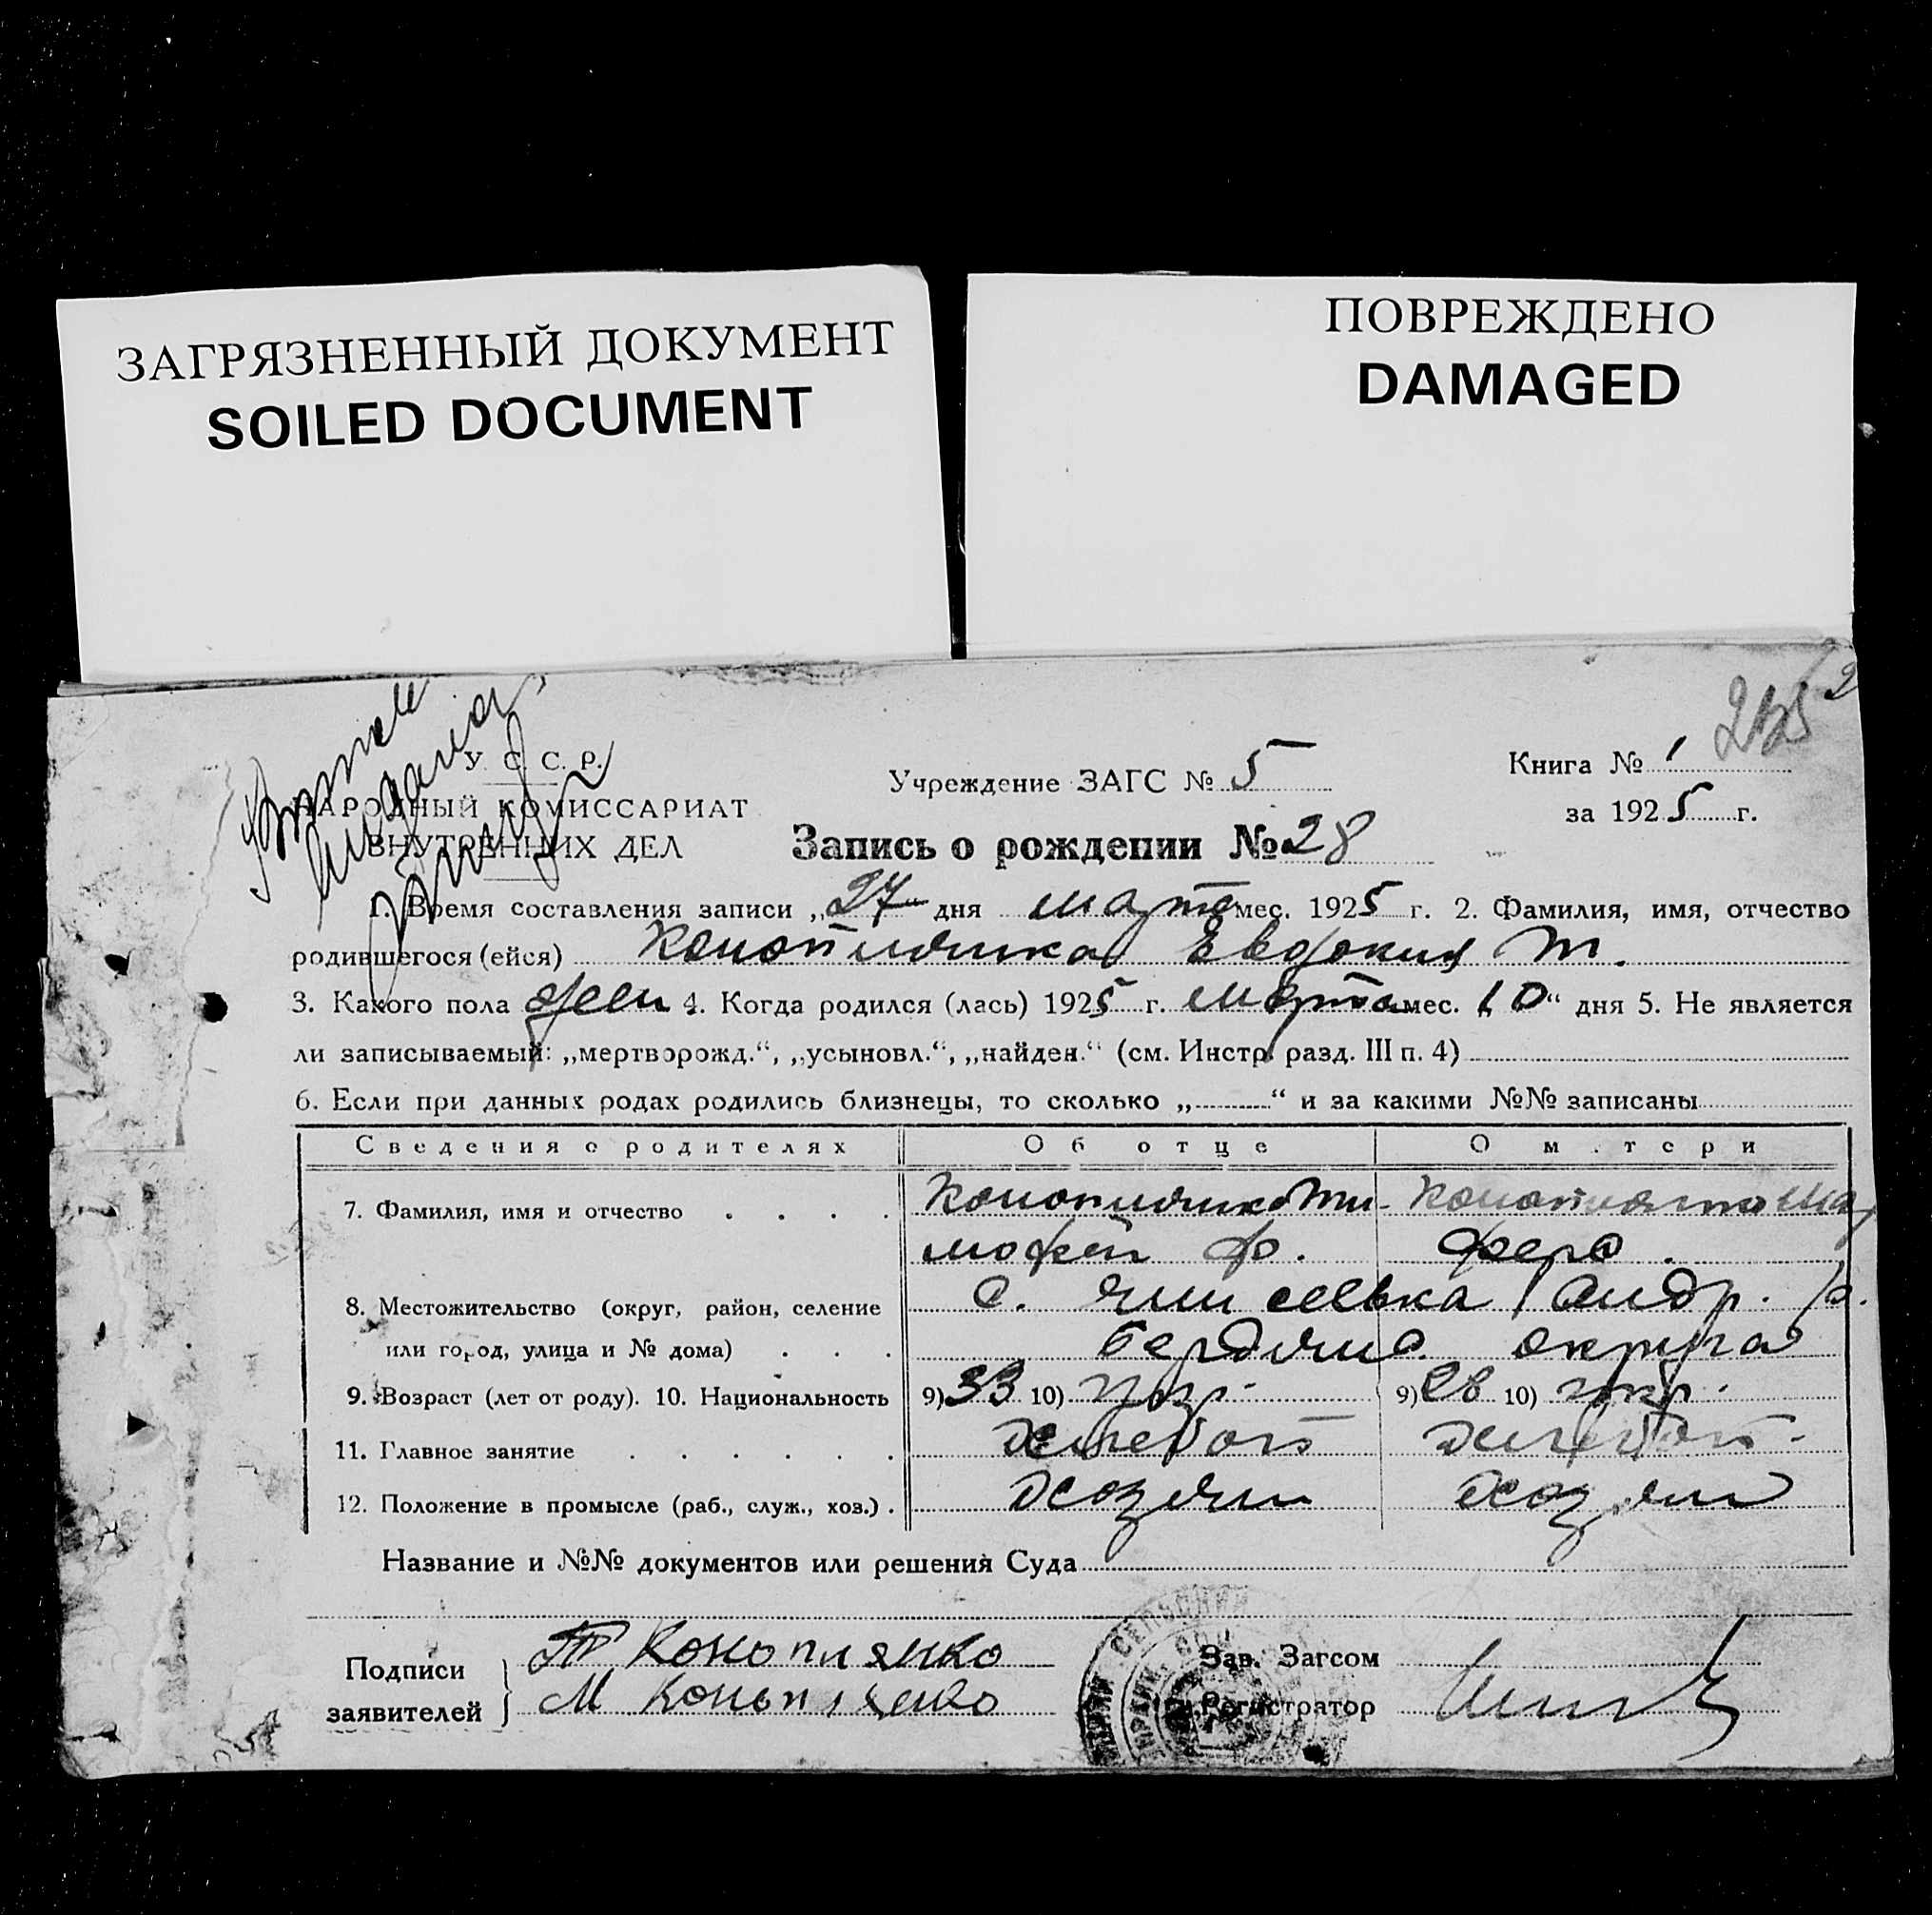 ЗАГРЯЗНЕННЫЙ ДОКУМЕНТ
SOILED DOCUMENT
ПОВРЕЖДЕНО
DAMAGED
У. С. С. Р.
НАРОДНЫЙ КОМИССАРИАТ
ВНУТРЕННИХ ДЕЛ
Учреждение ЗАГС № 5
Книга № 1
за 1925 г.
Запись о рождении № 28
1. Время составления записи „27“ дня марта мес. 1925 г. 2. Фамилия, имя, отчество
родившегося (ейся) Конопляника Евдокия Т.
3. Какого пола жен 4. Когда родился (лась) 1925 г. марта мес. 10“ дня 5. Не является
ли записываемый: „мертворожд.“, „усыновл.“, „найден.“ (см. Инстр. разд. III п. 4)
6. Если при данных родах родились близнецы, то сколько „ “ и за какими №№ записаны
Сведения о родителях Об отце О м тери
7. Фамилия, имя и отчество Конопляника Ти- Мар
мофей Ф. Фера.
8. Местожительство (округ, район, селение с. Андр. р.
или город, улица и № дома) Бердичев. округа
9. Возраст (лет от роду). 10. Национальность 9) 33 10) укр. 9) 28 10) укр.
11. Главное занятие хлебоп хлебоп.
12. Положение в промысле (раб., служ., хоз.) . хозяин хозяин
Название и №№ документов или решения Суда
Подписи
заявителей
Т Конопляико
М Конопляико
Зав. Загсом
Регистратор